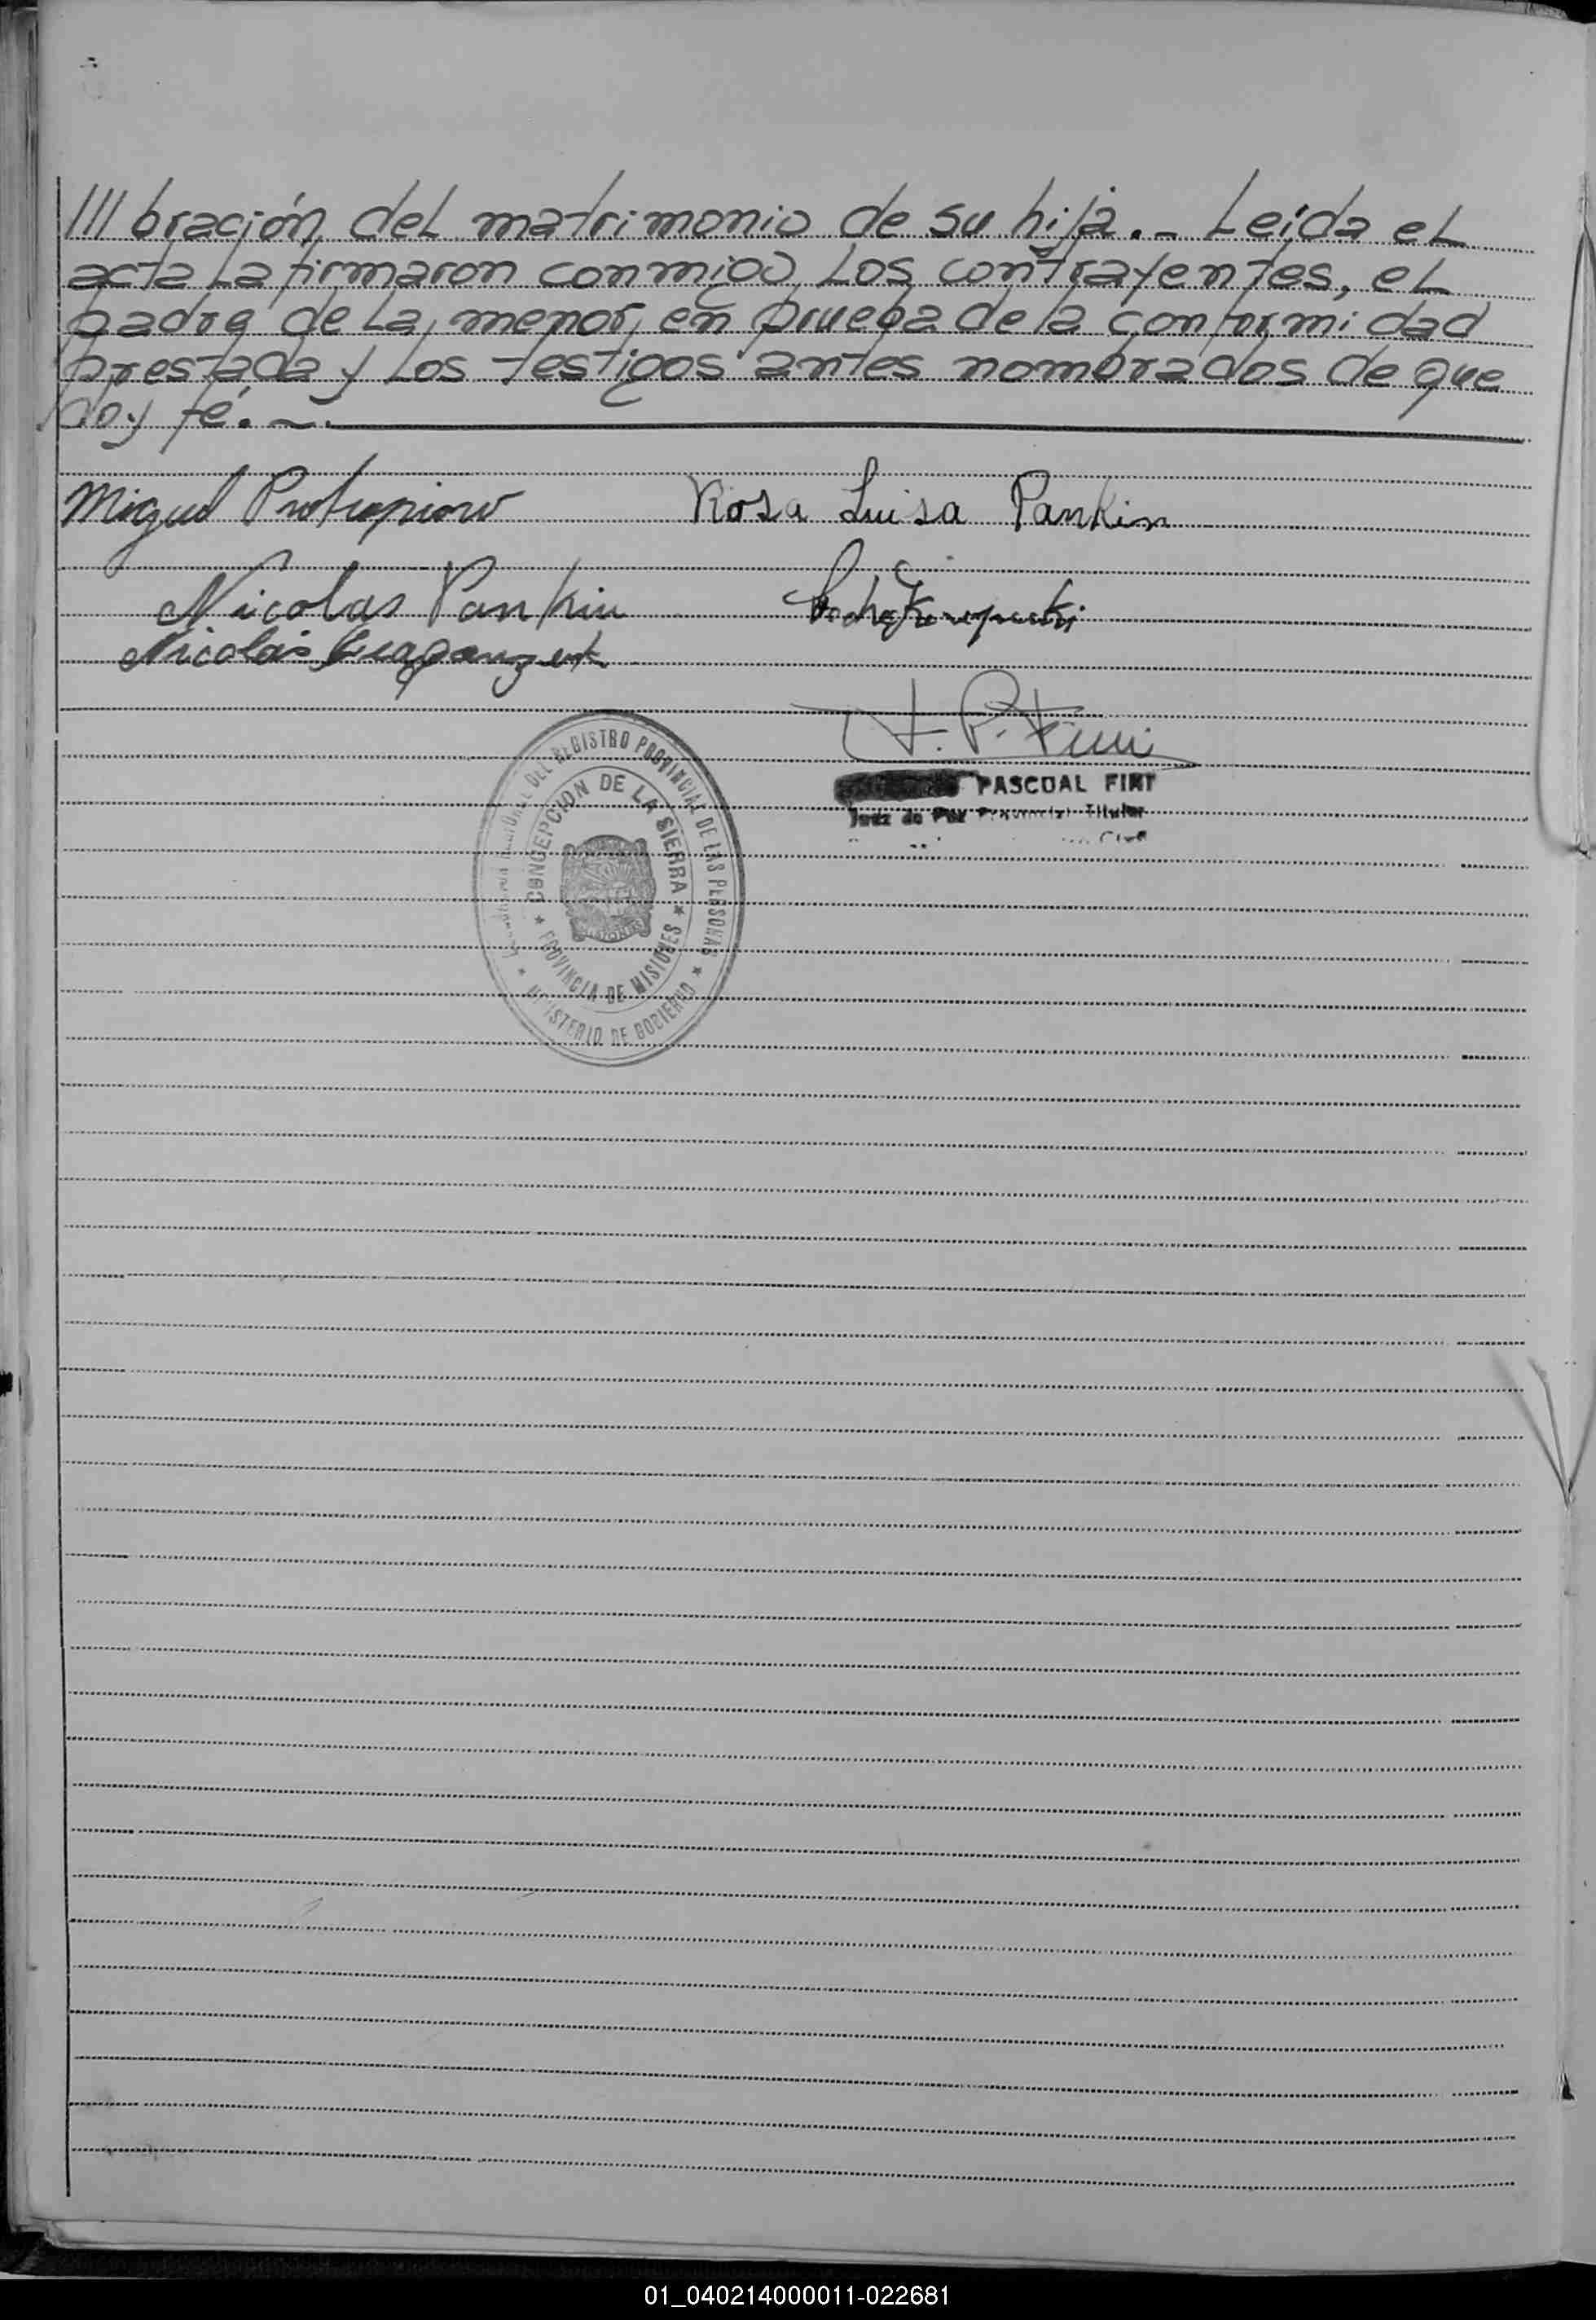 /// bración del matrimonio de su hija.- Leída el
acta la firmaron conmigo, los contrayentes, el
padre de la menor, en prueba de la conformidad
prestada y los testigos antes nombrados de que
doy fé. -
Miguel Rosa Luisa Pankin
Nicolas Pankin
Nicolás
J. P.
PASCUAL
Juez de Paz Titular
DEL REGISTRO PROVINCIAL DE LAS PERSONAS
CONCEPCION DE LA SIERRA
PROVINCIA DE MISIONES
MINISTERIO DE GOBIERNO
MISIONES
01_040214000011-022681